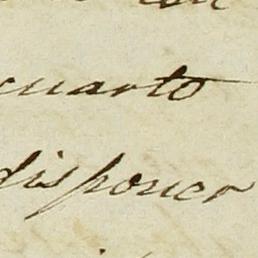 cuarto
disponer